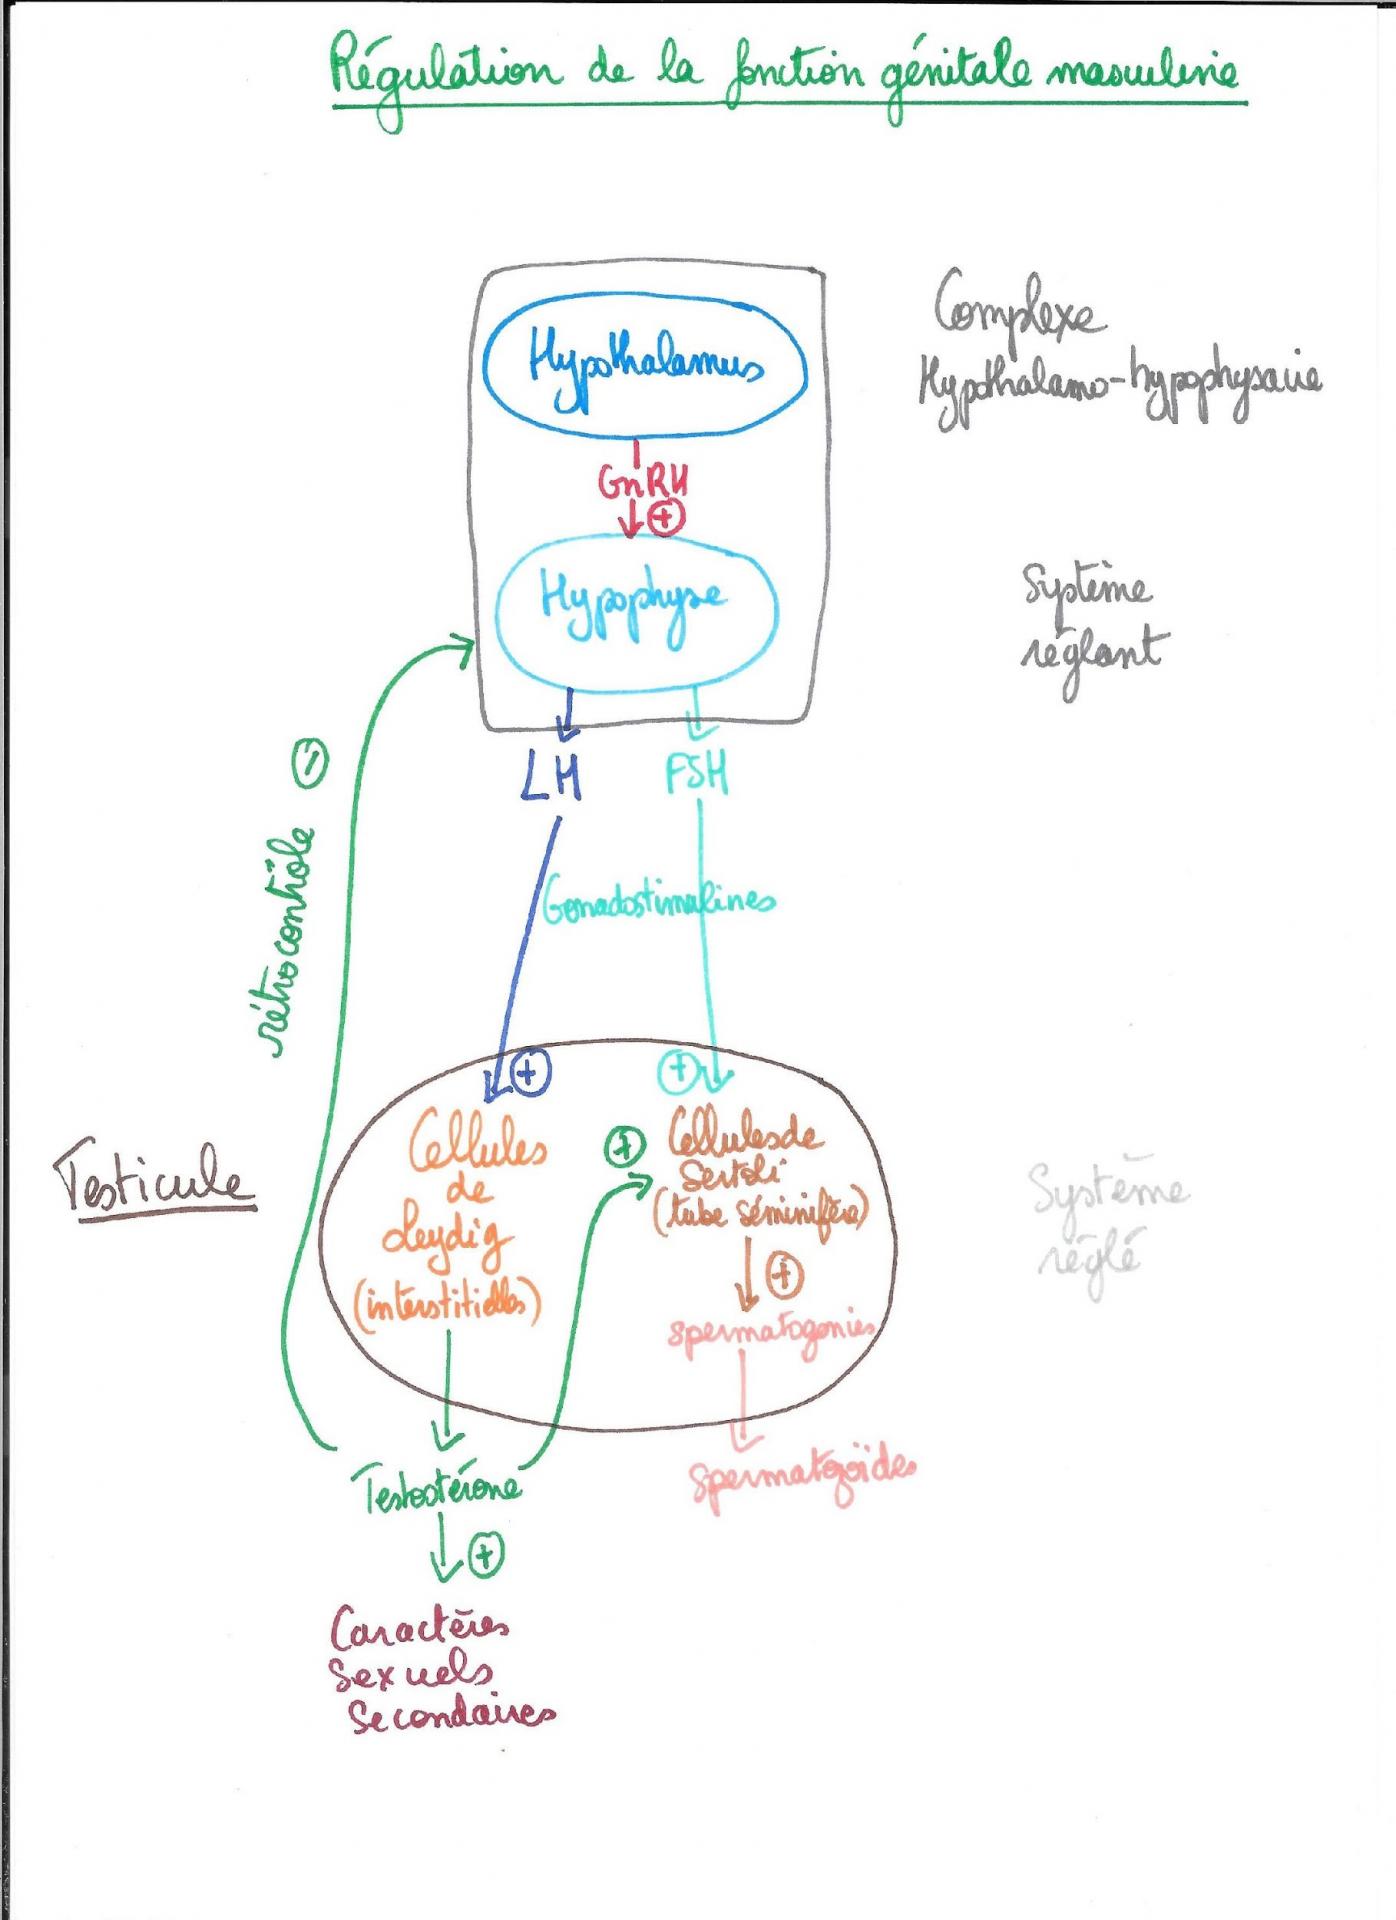 Régulation de la fonction génitale masculine
Complexe
Hypothalamo-hypophysaire
Hypothalamus
GnRH
+
Hypophyse
Système
réglant
LH FSH
-
rétrocontrôle
Gonadostimulines
+ +
Testicule
Cellules
de
Leydig
(interstitielles)
+
Cellules de
Sertoli
(tube séminifère)
+
spermatogonies
Système
réglé
Testostérone
spermatozoïdes
+
Caractères
Sexuels
Secondaires